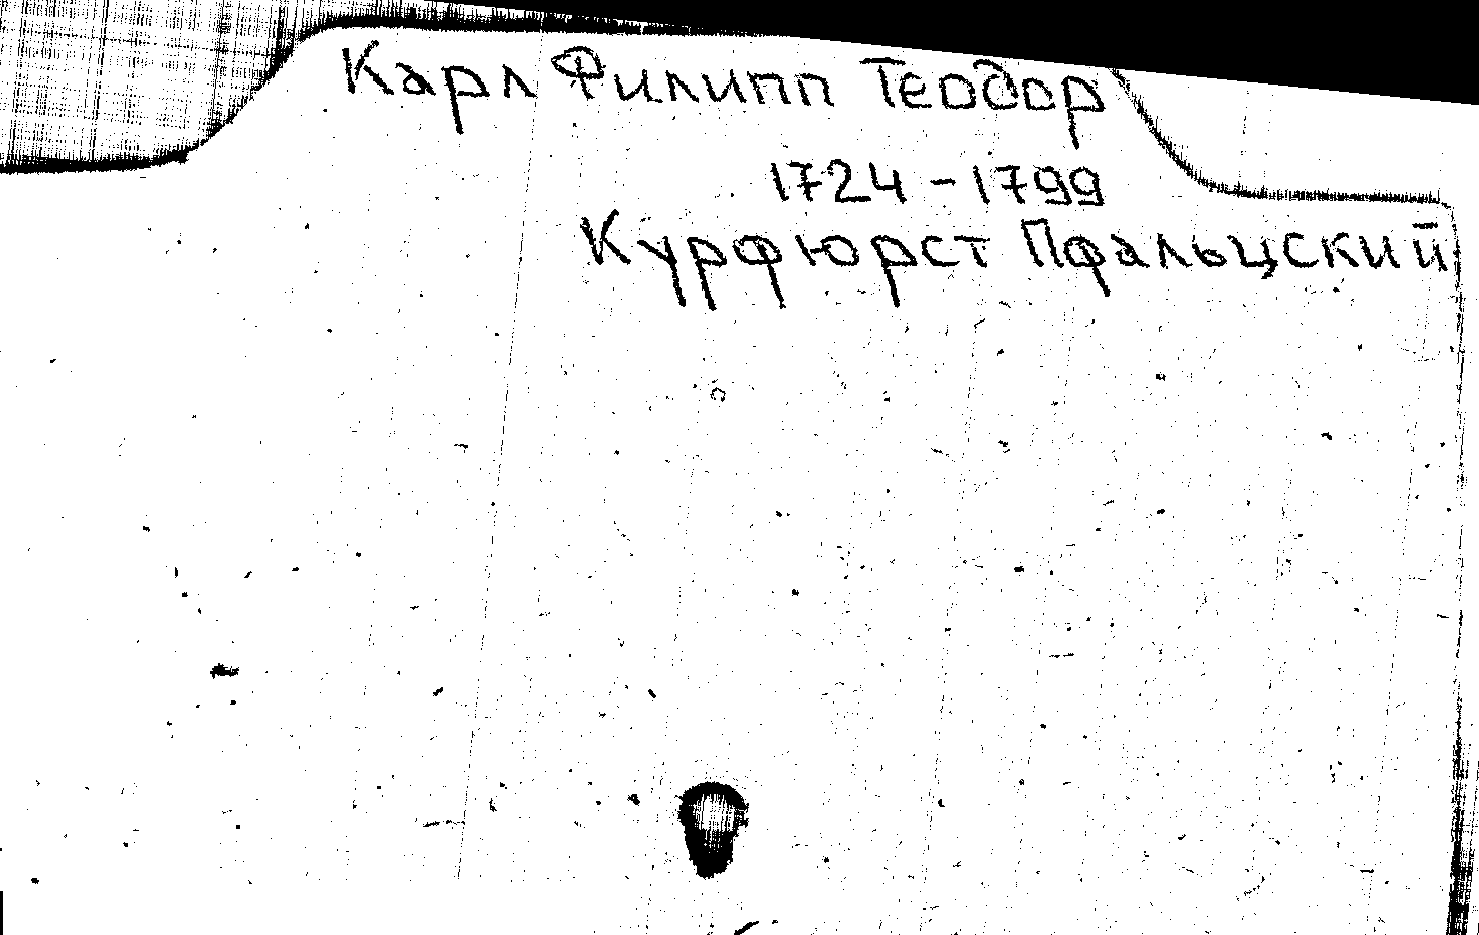 Карл Филипп Теодор
1724 - 1799
Курфюрст Пфальцский